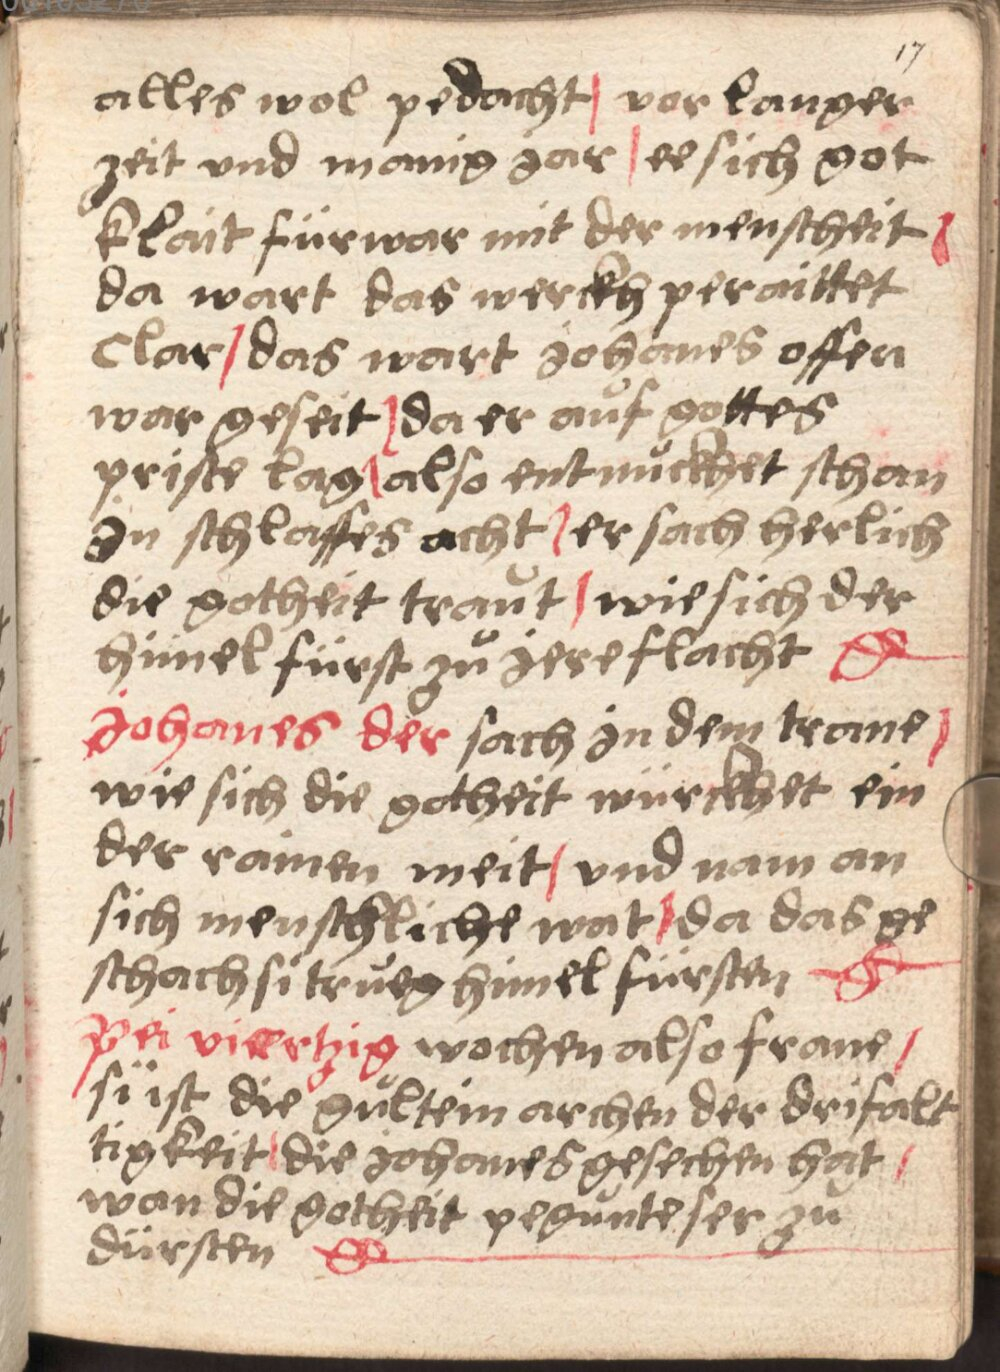 17
alles wol pedacht / vor langer
zeit vnd manig jar / ee sich got
klait fürwar mit der menscheit /
da wart das werckh peraittet
Clar / das wart johanes offen
war geseit / da er auf gottes
priste lag / also entnuckhet schan
jn schlaffes acht / er sach herlich
die gotheit traut / wie sich der
himel fürst zu jere flacht
johanes der sach jn dem trane /
wie sich die gotheit würckhet ein
der rainen meit / vnd nam an
sich menschliche wat / da das ge
schach si trueg himel fürsten
pei viertzig wochen also frane /
sü ist die gultein archen der drifalt
tigkeit / die johanes gesechen hat /
wan die gotheit pegunte ser zu
dürsten